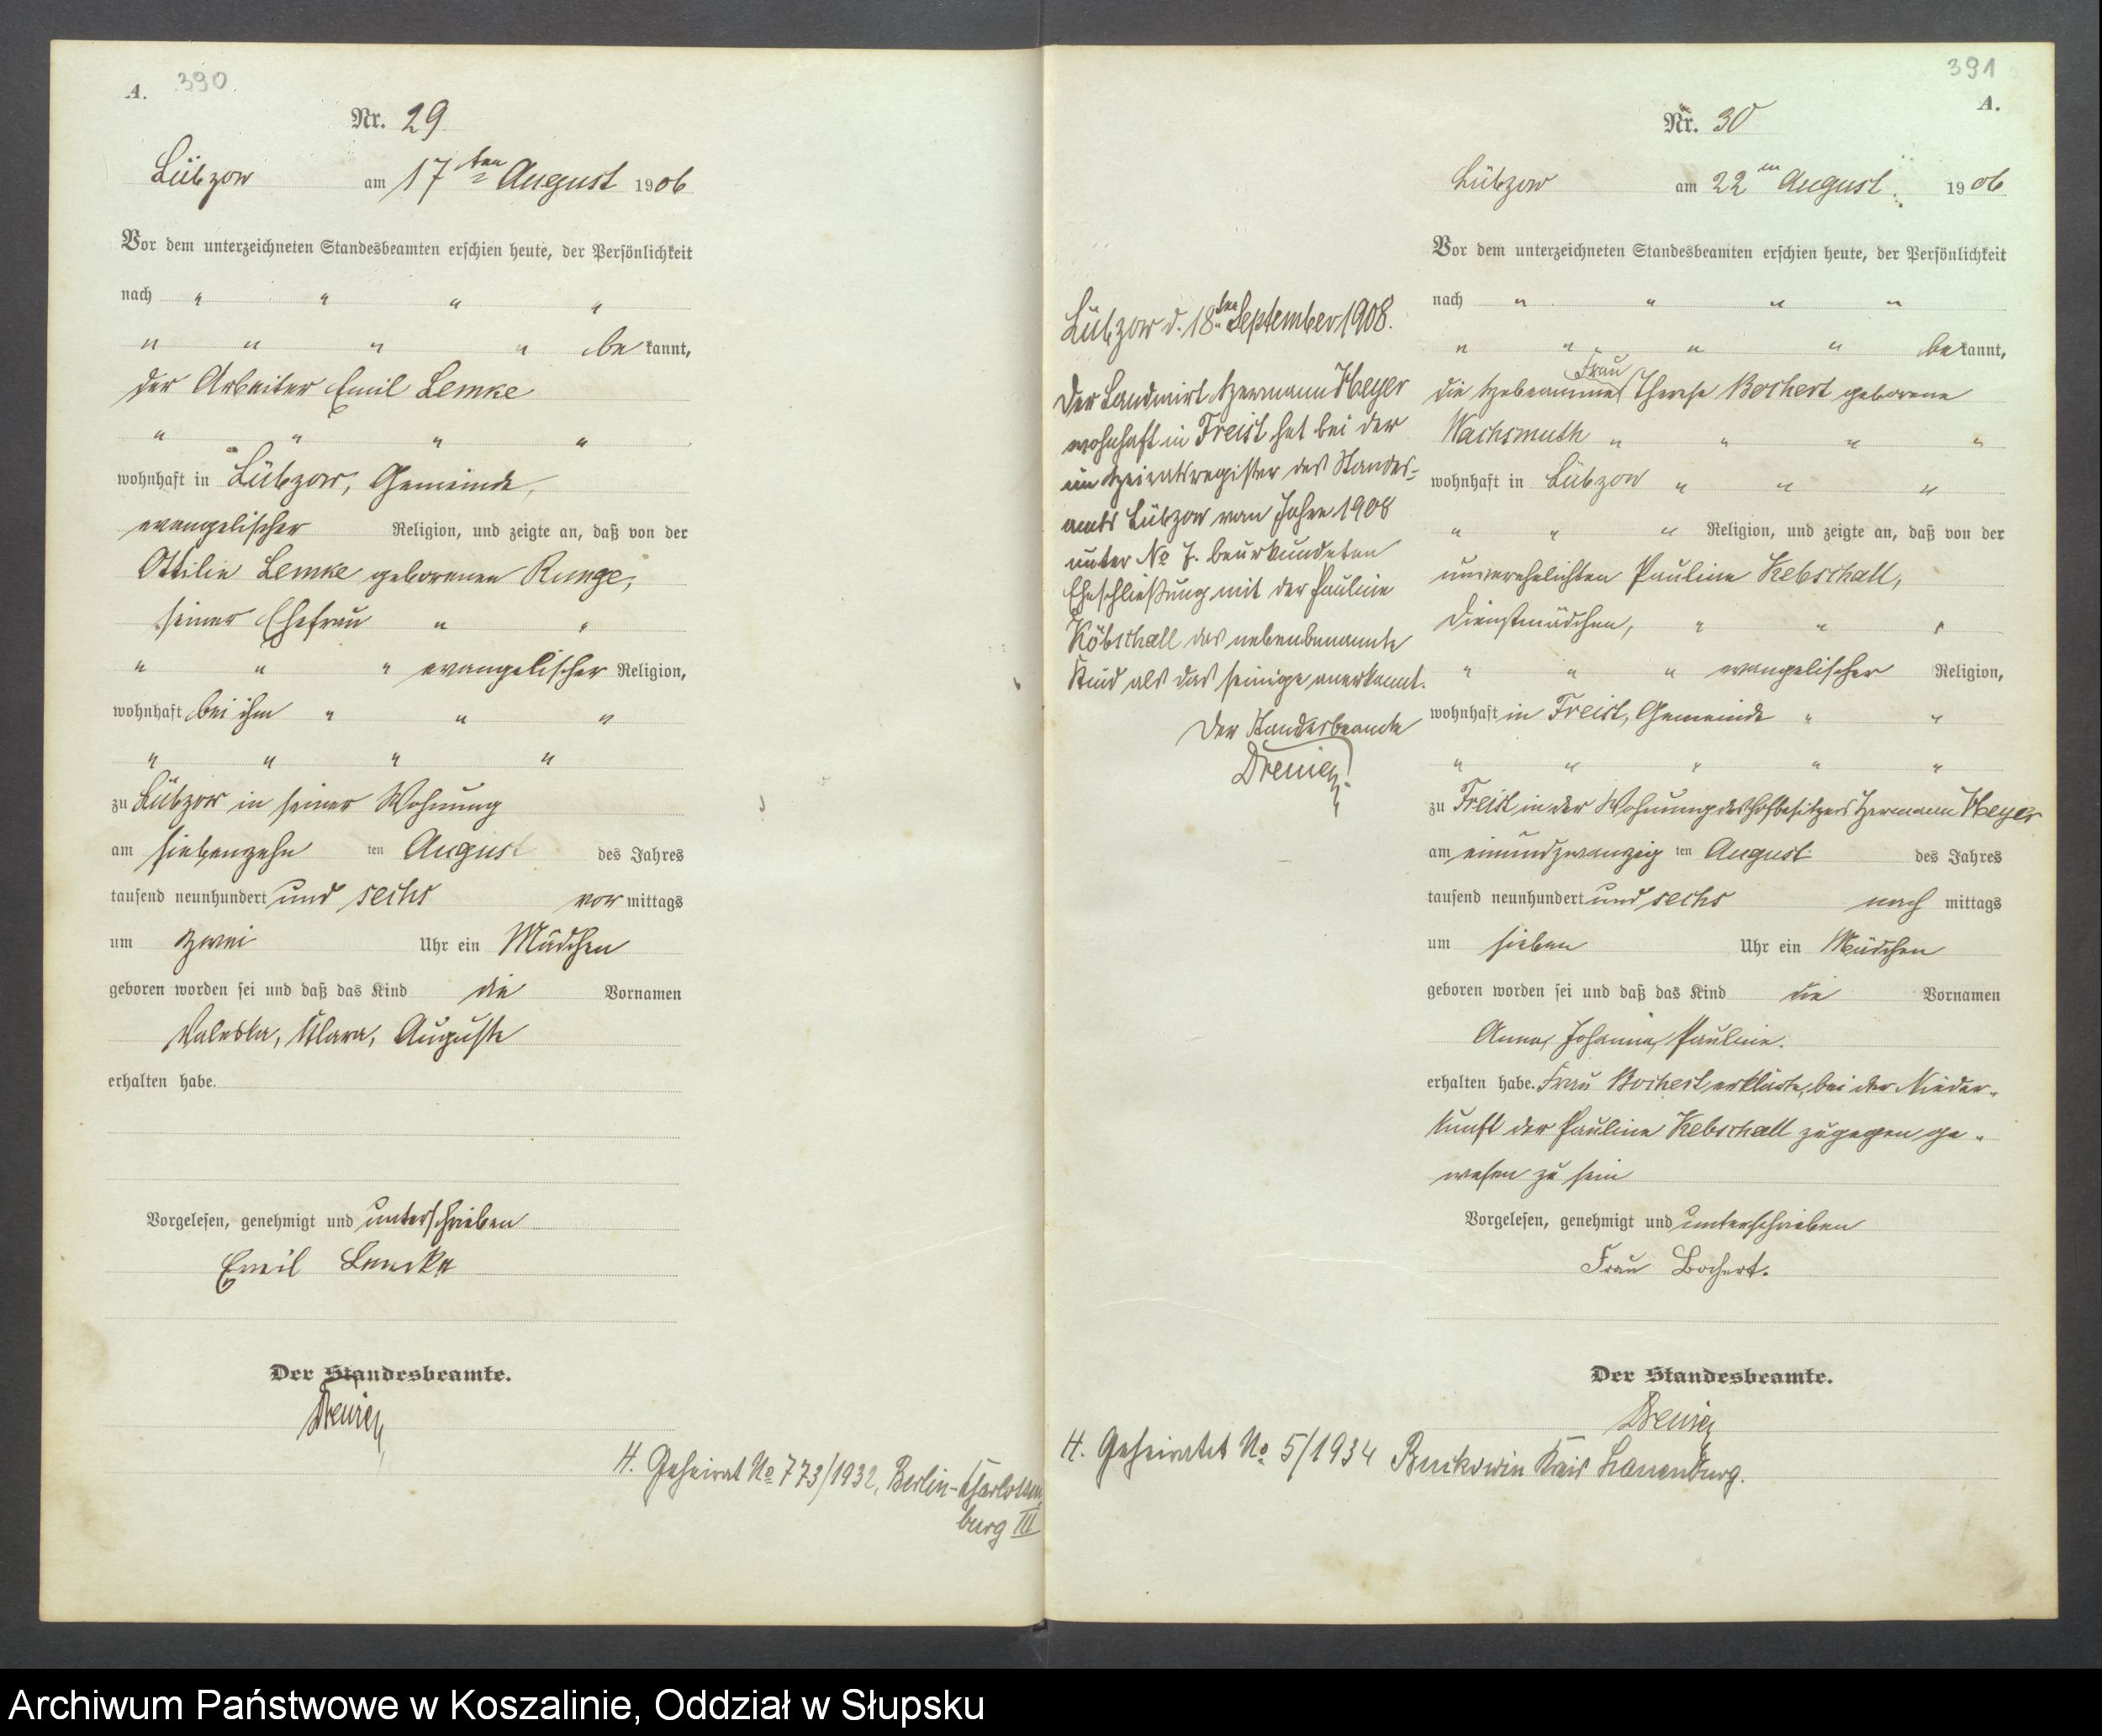 A. 390.
Nr. 29
Lübzow am 17ten August 1906
Vor dem unterzeichneten Standesbeamten erschien heute, der Persönlichkeit
nach " " " "
" " " " be kannt,
der Arbeiter Emil Lemke
" " " "
wohnhaft in Lübzow, Gemeinde,
evangelischer Religion, und zeigte an, daß von der
Ottilie Lemke geborenen Runge,
seiner Ehefrau " "
" " " evangelischer Religion,
wohnhaft bei ihm " " "
" " " "
zu Lübzow in seiner Wohnung
am siebenzehn ten August des Jahres
tausend neunhundert und sechs vor mittags
um zwei Uhr ein Mädchen
geboren worden sei und daß das Kind die Vornamen
Valeska, Klara, Auguste
erhalten habe.
Vorgelesen, genehmigt und unterschrieben
Emil Lemke
Der Standesbeamte.
H. Geheirat No 773/1932, Berlin-Charlotten
burg III
391
A.
Nr. 30
Lübzow am 22ten August. 1906
Vor dem unterzeichneten Standesbeamten erschien heute, der Persönlichkeit
nach " " " "
" " " " be kannt,
Frau
die Hebeamme Therese Bochert geborene
Wachsmuth " " " "
wohnhaft in Lübzow " " "
" " " Religion, und zeigte an, daß von der
unverehelichten Pauline Kebschall,
Dienstmädchen, " " "
" " " evangelischer Religion,
wohnhaft in Freist, Gemeinde " "
" " " " "
zu Freist in der Wohnung des Hofbesitzers Hermann Meyer
am einundzwanzig ten August des Jahres
tausend neunhundert und sechs nach mittags
um sieben Uhr ein Mädchen
geboren worden sei und daß das Kind die Vornamen
Anna, Johanna, Pauline.
erhalten habe. Frau Bochert erklärte, bei der Nieder-
kunft der Pauline Kebschall zugegen ge-
wesen zu sein
Vorgelesen, genehmigt und unterschrieben
Frau Bochert.
Der Standesbeamte.
Lübzow d. 18ten September 1908.
Der Landwirt Hermann Meyer
wohnhaft in Freist hat bei der
im Heiratsregister des Standes-
amts Lübzow vom Jahre 1908
unter No 7. beurkundeten
Eheschließung mit der Pauline
Köbschall das nebenbenannte
Kind als das seinige anerkannt.
Der Standesbeamte
H. Geheiratet No 5/1934 Buckowin Kreis Lauenburg.
Archiwum Państwowe w Koszalinie, Oddział w Słupsku